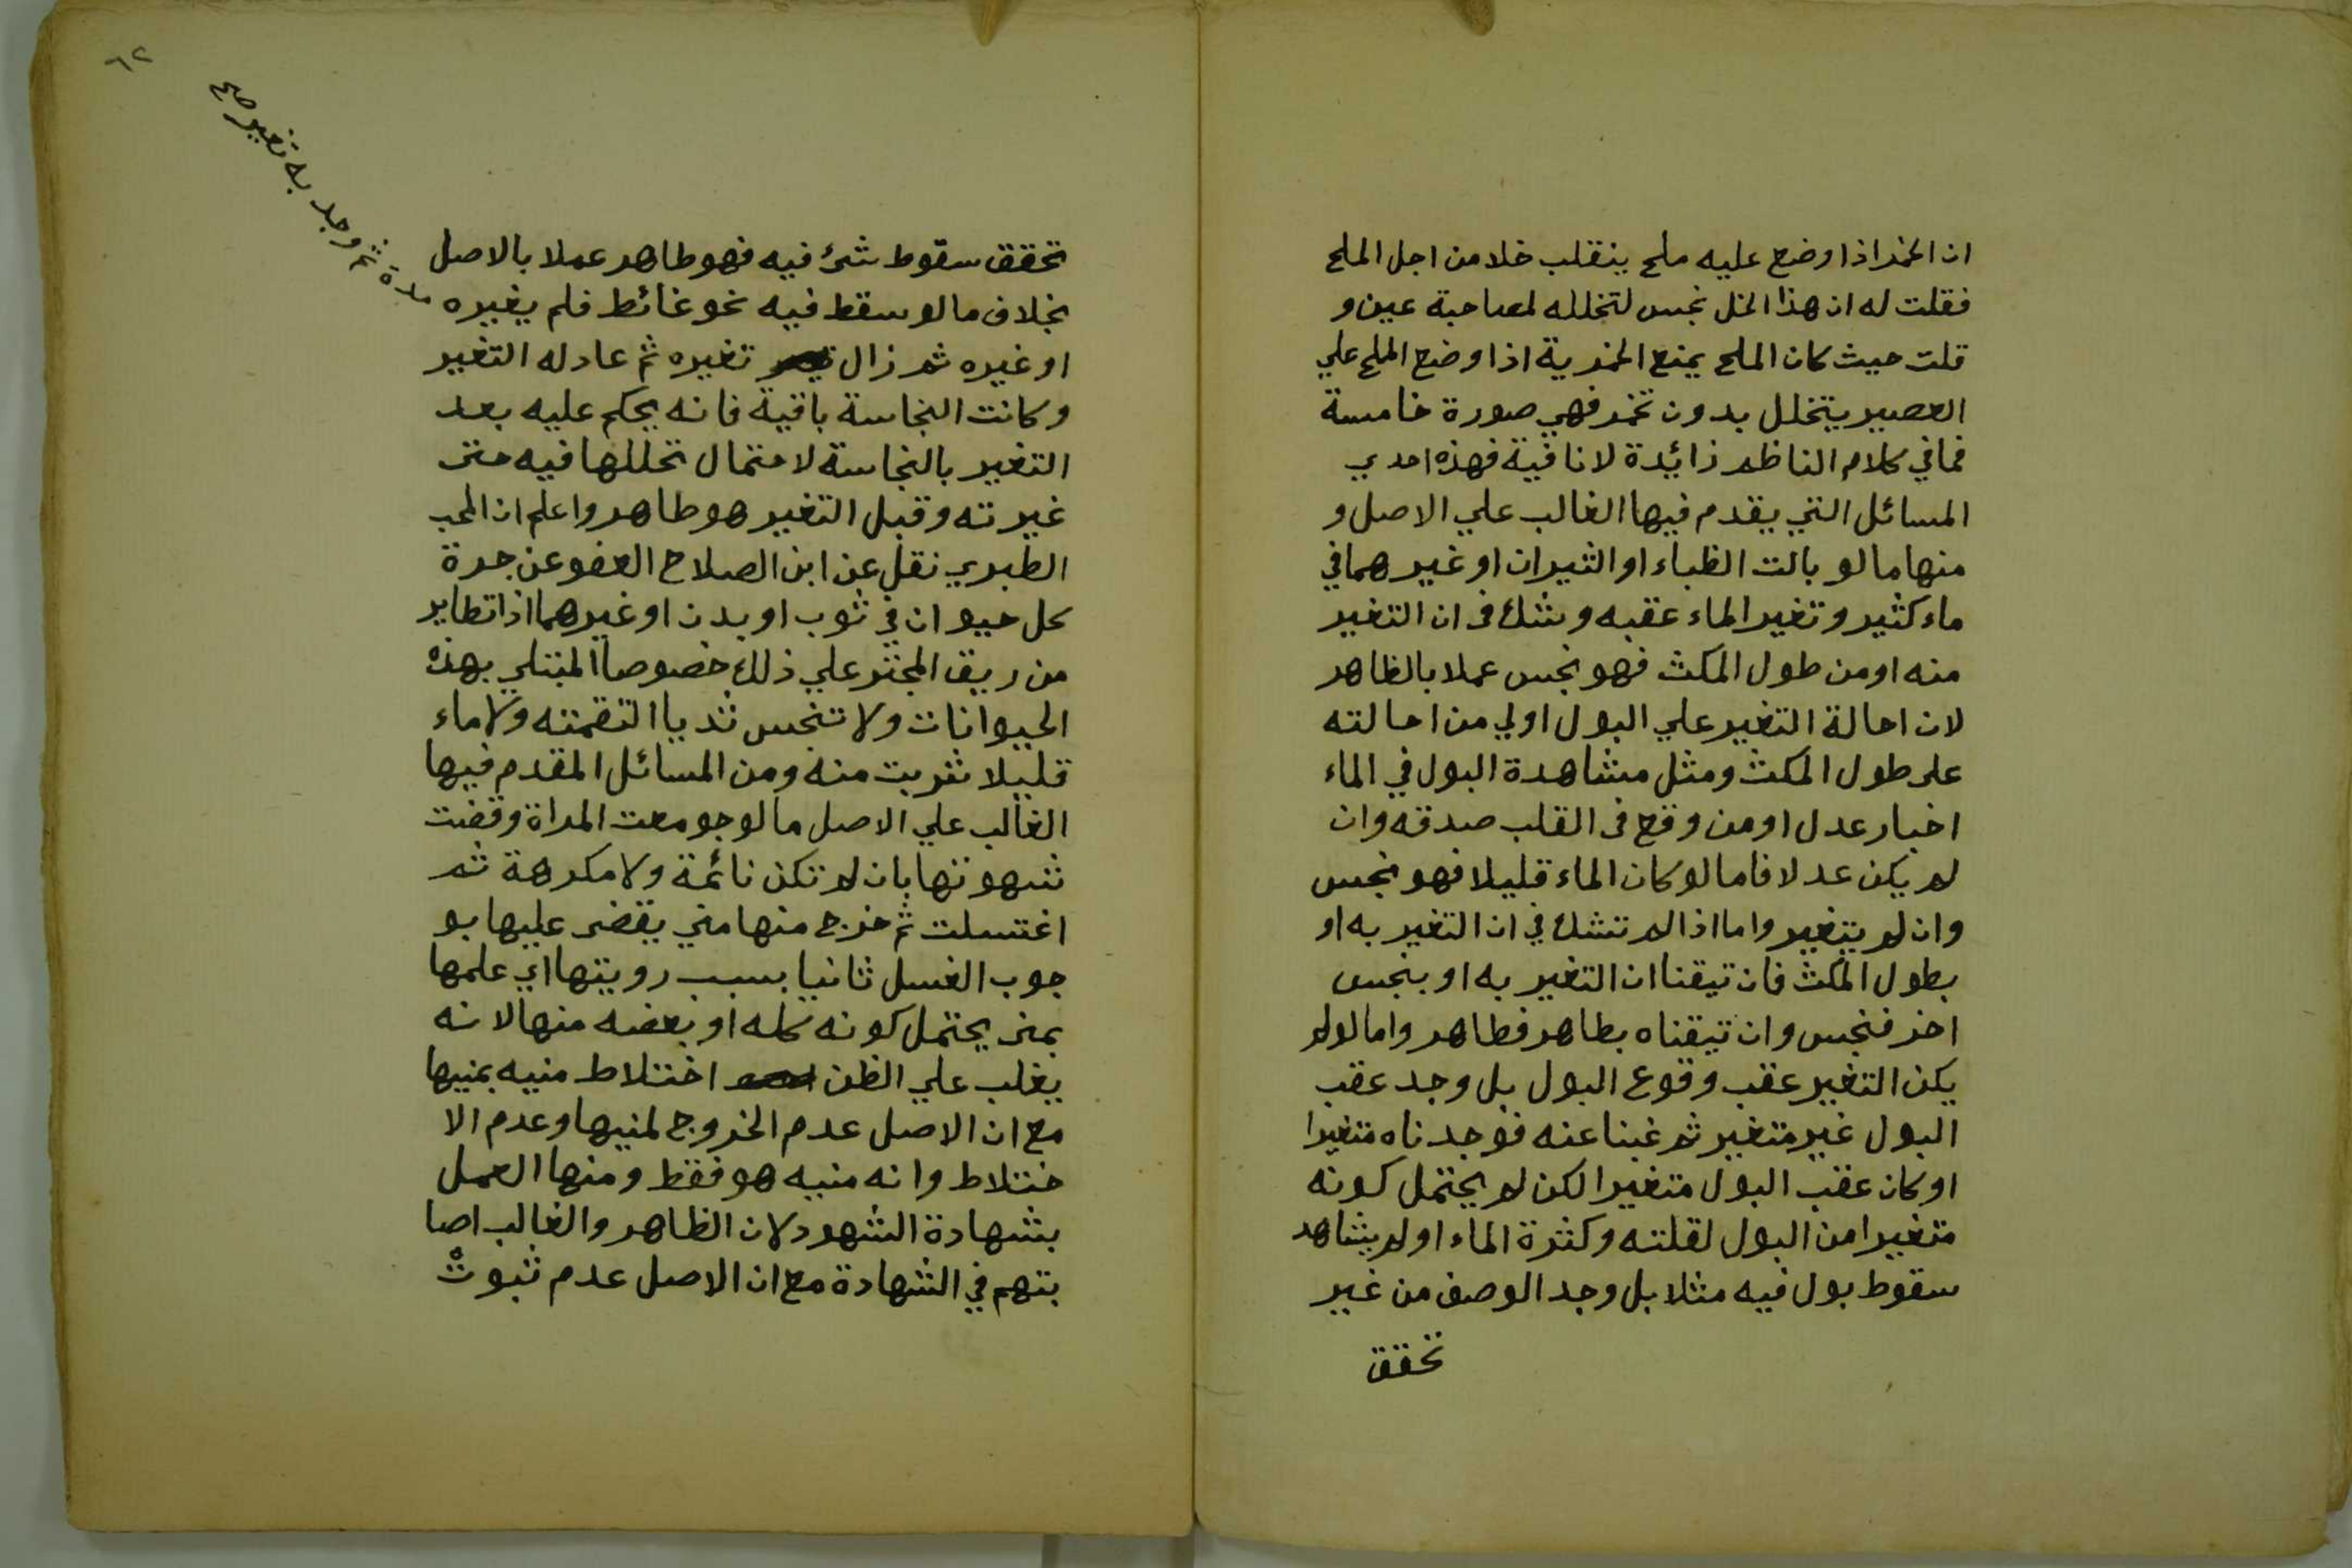 ان الخمر اذا وضع عليه ملح ينقلب خلا من اجل الملح
فقلت له ان هذا الخل نجس لتخلله لمصاحبة عين و
قلت حيث كان الملح يمنع الخمرية اذا وضع الملح علي
العصير يتخلل بدون تخمر فهي صورة خامسة
فما في كلام الناظم زائدة لا نافية فهذه احدي
المسائل التي يقدم فيها الغالب علي الاصل و
منها ما لو بالت الظباء او الثيران او غيرهما في
ماء كثير وتغير الماء عقبه وشك في ان التغير
منه او من طول المكث فهو نجس عملا بالظاهر
لان احالة التغير علي البول اولي من احالته
على طول المكث ومثل مشاهدة البول في الماء
اخبار عدل او من وقع في القلب صدقه وان
لم يكن عدلا فاما لو كان الماء قليلا فهو نجس
وان لم يتغير واما اذا لم تشك في ان التغير به او
بطول المكث فان تيقنا ان التغير به او بنجس
اخر فنجس وان تيقناه بطاهر فطاهر واما لو لم
يكن التغير عقب وقوع البول بل وجد عقب
البول غير متغير ثم غبنا عنه فوجدناه متغيرا
او كان عقب البول متغيرا لكن لم يحتمل كونه
متغيرا من البول لقلته وكثرة الماء او لم يشاهد
سقوط بول فيه مثلا بل وجد الوصف من غير
تحقق
٦٢
تحقق سقوط شئ فيه فهو طاهر عملا بالاصل
بخلاف ما لو سقط فيه نحو غائط فلم يغيره
مدة ثم وجد به تغير صح
او غيره ثم زال تغيره ثم عاد له التغير
وكانت النجاسة باقية فانه يحكم عليه بعد
التغير بالنجاسة لاحتمال تحللها فيه حتى
غيرته وقبل التغير هو طاهر واعلم ان المحب
الطبري نقل عن ابن الصلاح العفو عن جرة
كل حيوان في ثوب او بدن او غيرهما اذا تطاير
من ريق المجتر علي ذلك خصوصا المبتلي بهذه
الحيوانات ولا تنجس ثديا التقمته ولا ماء
قليلا شربت منه ومن المسائل المقدم فيها
الغالب علي الاصل ما لو جومعت المراة وقضت
شهوتها بان لم تكن نائمة ولا مكرهة ثم
اغتسلت ثم خرج منها مني يقضى عليها بو
جوب الغسل ثانيا بسبب رويتها اي علمها
بمنى يحتمل كونه كله او بعضه منها لانه
يغلب علي الظن اختلاط منيه بمنيها
مع ان الاصل عدم الخروج لمنيها وعدم الا
ختلاط وانه منيه هو فقط ومنها العمل
بشهادة الشهود لان الظاهر والغالب اصا
بتهم في الشهادة مع ان الاصل عدم ثبوت